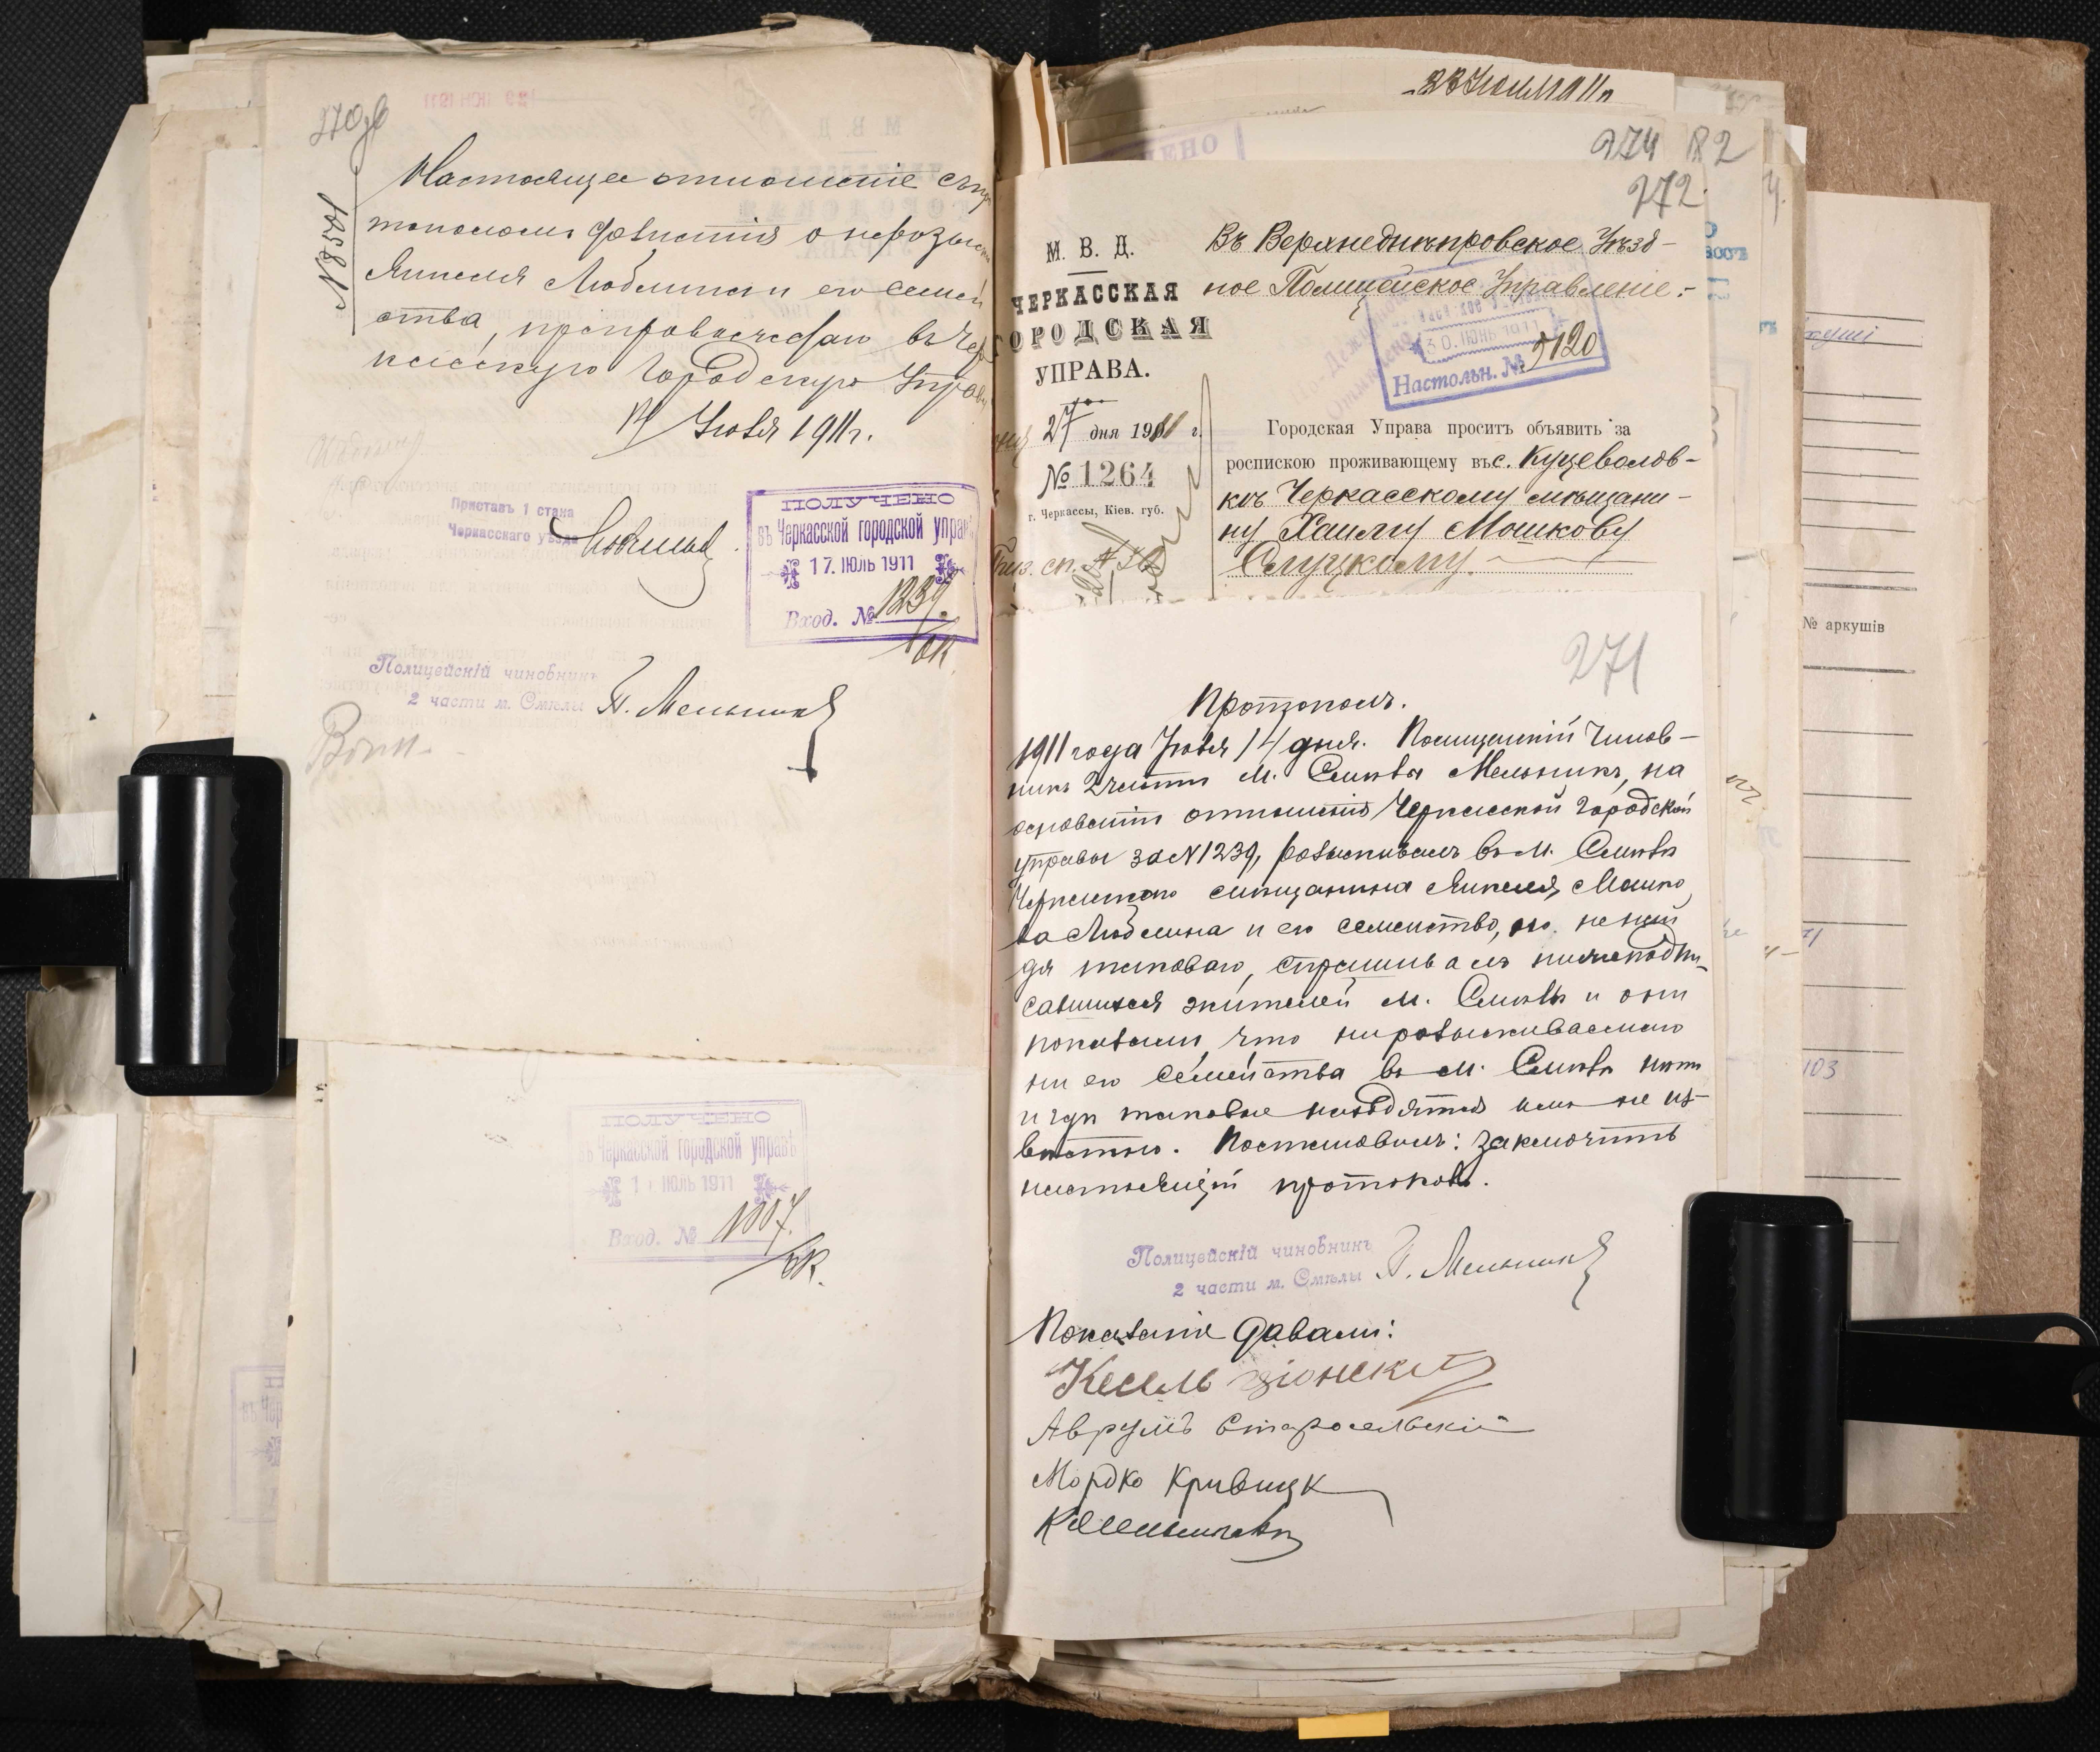 270 об
№ 8501
Настоящее отношеніе съ про
токоломъ дознанія о нерозыск
Янкеля Люблина и его семей
ства, препровождаю въ Чер
касскую Городскую Управ
14 Іюля 1911 г.
Приставъ 1 стана
Черкасскаго уѣзда
ПОЛУЧЕНО
въ Черкасской городской управѣ
17. ІЮЛЬ 1911
Вход. № 1239
Полицейскій чиновникъ
2 части м. Смѣлы П. Мельникъ
ПОЛУЧЕНО
въ Черкасской городской управѣ
ІЮЛЬ 1911
Вход. № 1007
274
272
М. В. Д.
ЧЕРКАССКАЯ
ГОРОДСКАЯ
УПРАВА.
27 дня 1911 г.
№ 1264
г. Черкассы, Кіев. губ.
Въ Верхнеднѣпровское Уѣзд-
ное Полицейское Управленіе.
30. ІЮНЬ 1911
Настольн. № 5120
Городская Управа проситъ объявить за
роспискою проживающему въ с. Куцеволов-
кѣ Черкасскому мѣщани-
ну Хаиму Мошкову
Слуцкому.
№ аркушів
103
271
Протоколъ.
1911 года Іюля 14 дня. Полицейскій Чинов-
никъ 2 части м. Смѣлы Мельникъ, на
основаніи отношенія Черкасской Городской
Управы за № 1239, розыскивалъ въ м. Смѣлѣ
Черкасскаго мѣщанина Янкеля Мошко
ва Люблина и его семейство, но не най
дя таковаго, спрашивалъ нижеподпи-
савшихся жителей м. Смѣлы и они
показали, что ни розыскиваемаго
ни его семейства въ м. Смѣлѣ нѣтъ
и гдѣ таковые находятся намъ не из-
вѣстно. Постановилъ: заключить
настоящій протоколъ.
Полицейскій чиновникъ
2 части м. Смѣлы П. Мельникъ
Показанія давали:
Аврумъ Старосельскій
Мордко Кривицк